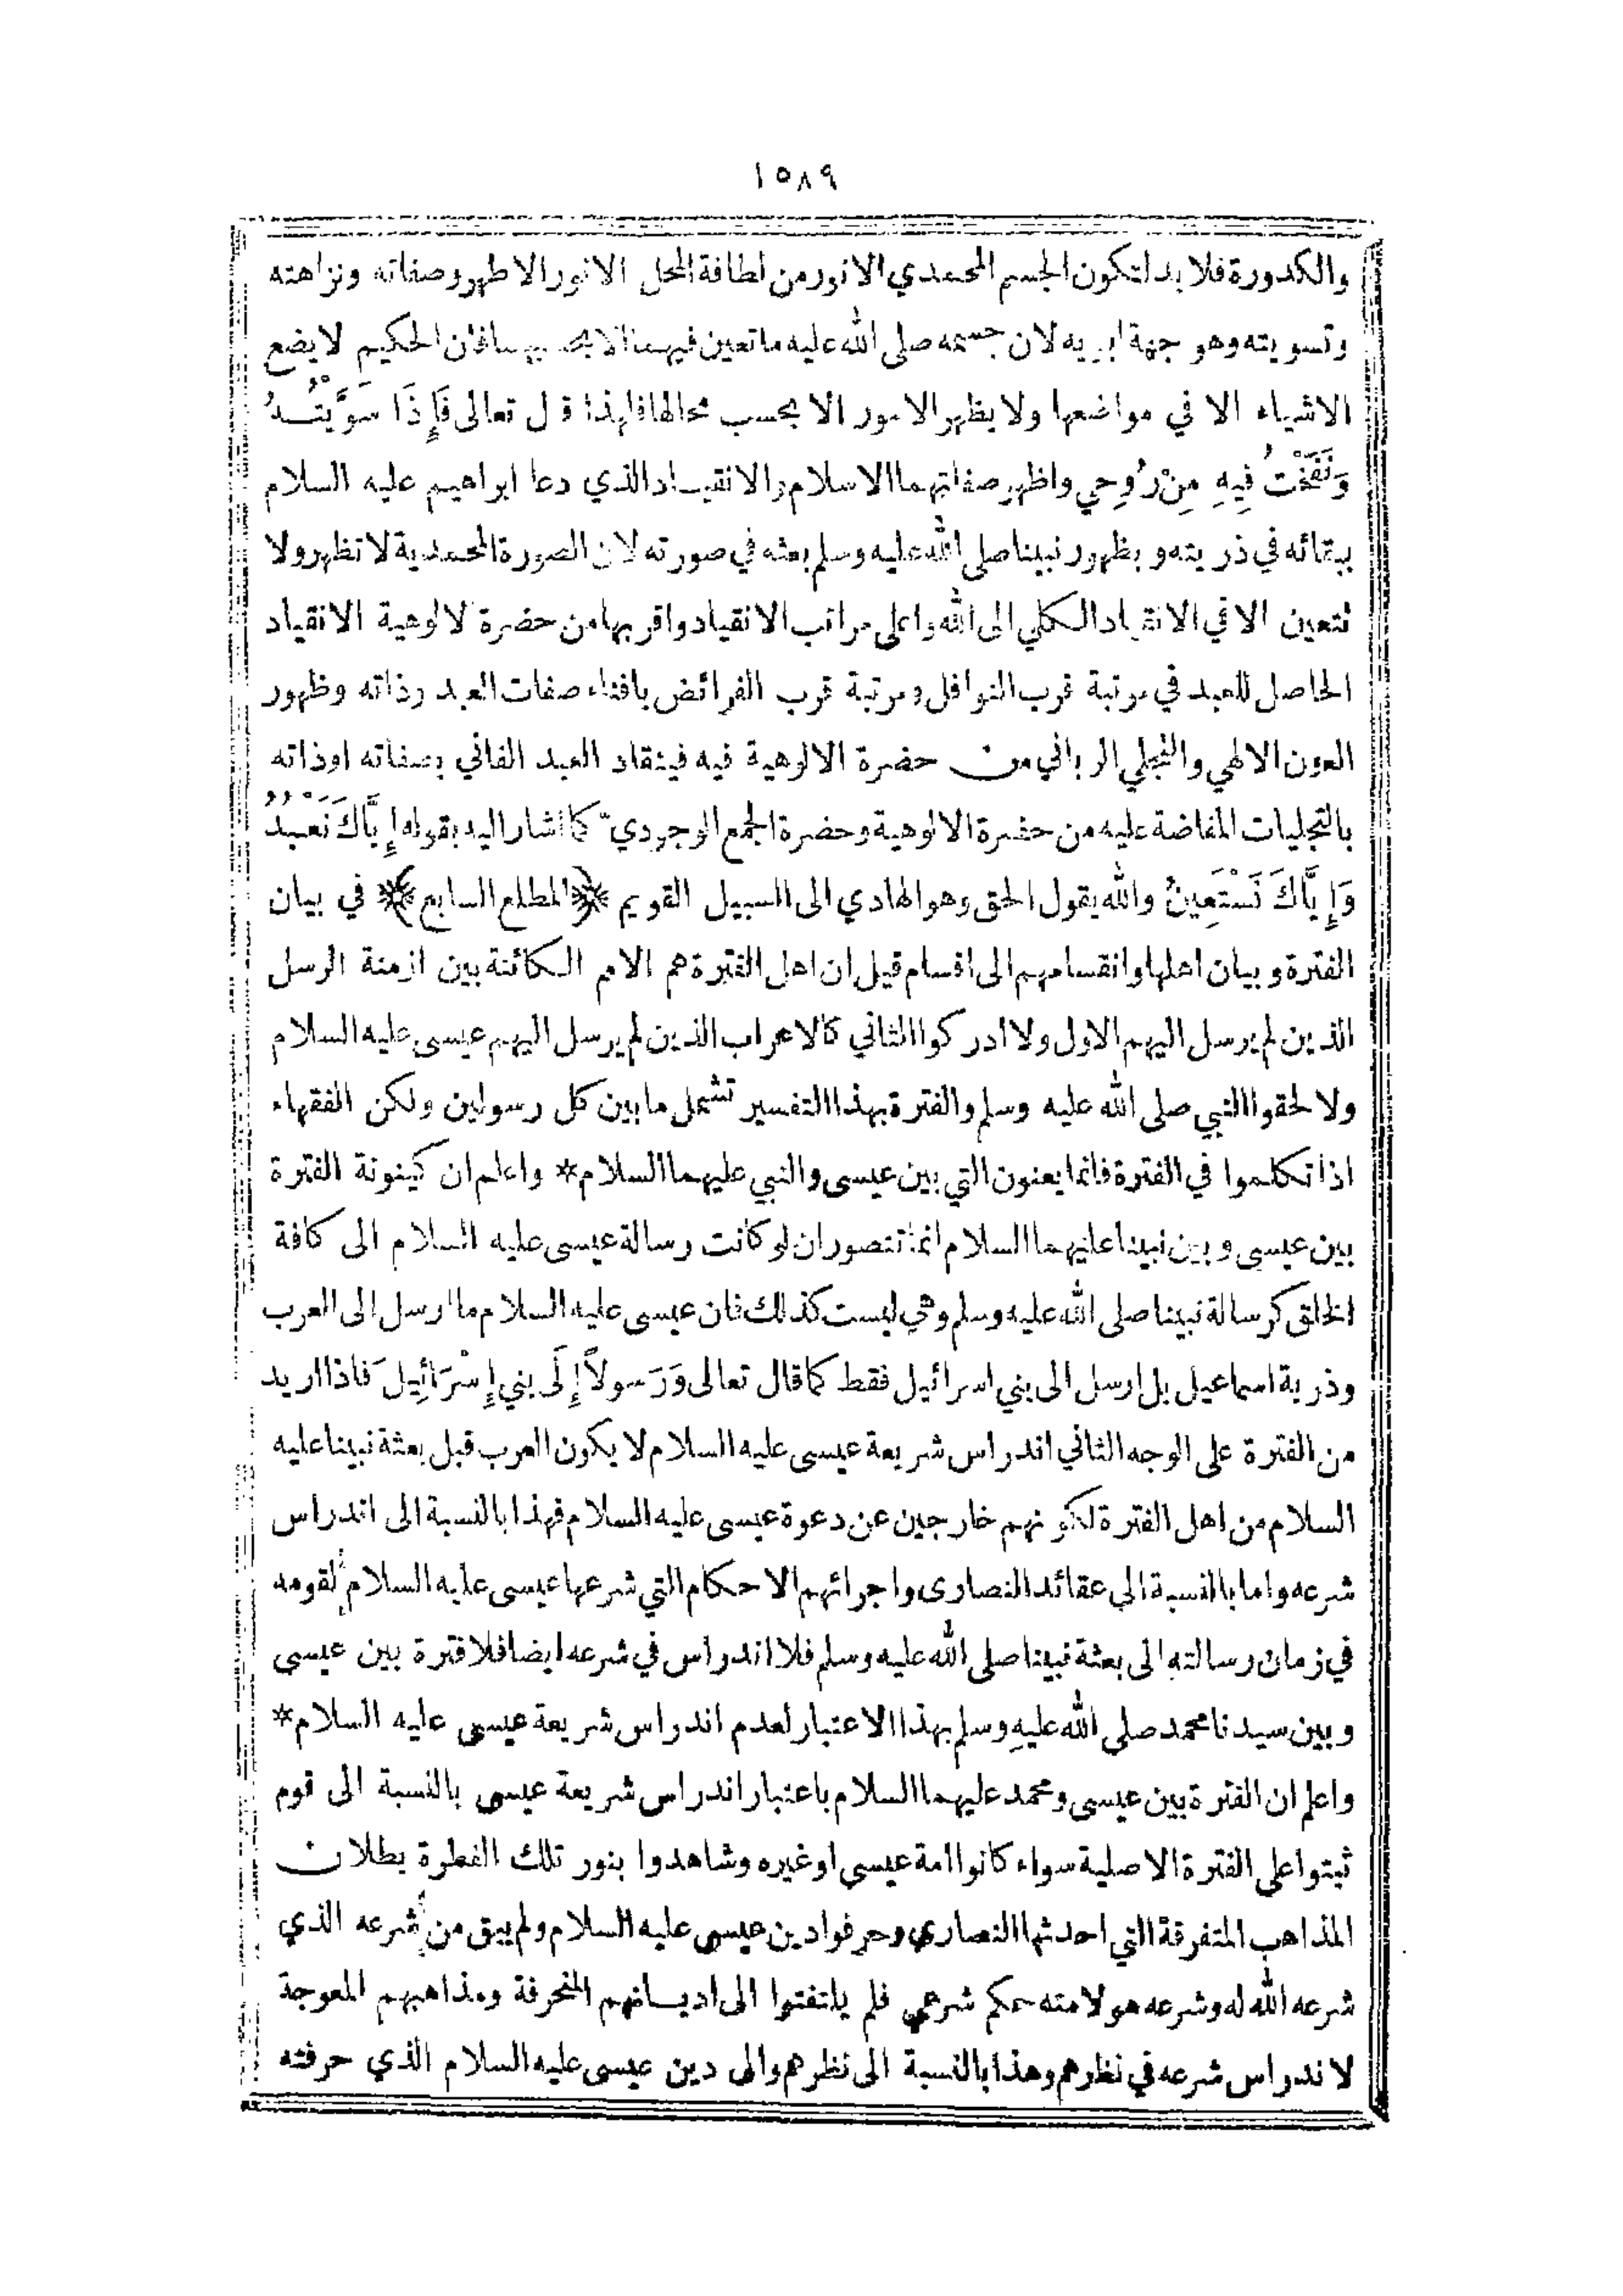 ١٥٨٩
والكدورة فلا بد لتكون الجسم المحمدي الانور من لطافة المحل الانور الاطهر وصفاته ونزاهته
وتسويته وهو جهة ابويه لان جسمه صلى الله عليه ما تعين فيهما الا بحسبهما فان الحكيم لا يضع
الاشياء الا في مواضعها ولا يظهر الامور الا بحسب محالها فلهذا قال تعالى فَإِذَا سَوَّيْتُهُ
وَنَفَخْتُ فِيهِ مِنْ رُوحِي واظهر صفاتهما الاسلام والانقياد الذي دعا ابراهيم عليه السلام
ببقائه في ذريته وبظهور نبينا صلى الله عليه وسلم بعثه في صورته لان الصورة المحمدية لا تظهر ولا
تتعين الا في الانقياد الكلي الى الله واعلى مراتب الانقياد واقربها من حضرة لالوهية الانقياد
الحاصل للعبد في مرتبة قرب النوافل ومرتبة قرب الفرائض بافناء صفات العبد وذاته وظهور
العون الالهي والتجلي الرباني من حضرة الالوهية فيه فينقاد العبد الفاني بصفاته اوذاته
بالتجليات المفاضة عليه من حضرة الالوهية وحضرة الجمع الوجودي كما اشار اليه بقوله إِيَّاكَ نَعْبُدُ
وَإِيَّاكَ نَسْتَعِينُ والله يقول الحق وهو الهادي الى السبيل القويم ﴿المطلع السابع﴾ في بيان
الفترة وبيان اهلها وانقسامهم الى اقسام قيل ان اهل الفترة هم الامم الكائنة بين ازمنة الرسل
الذين لم يرسل اليهم الاول ولا ادركوا الثاني كالاعراب الذين لم يرسل اليهم عيسى عليه السلام
ولا لحقوا النبي صلى الله عليه وسلم والفترة بهذا التفسير تشمل ما بين كل رسولين ولكن الفقهاء
اذا تكلموا في الفترة فانما يعنون التي بين عيسى والنبي عليهما السلام * واعلم ان كينونة الفترة
بين عيسى وبين نبينا عليهما السلام انما تتصور ان لو كانت رسالة عيسى عليه السلام الى كافة
الخلق كرسالة نبينا صلى الله عليه وسلم وهي ليست كذلك فان عيسى عليه السلام ما ارسل الى العرب
وذرية اسماعيل بل ارسل الى بني اسرائيل فقط كما قال تعالى وَرَسولاً إِلَى بني إِسْرَائِيلَ فاذا اريد
من الفترة على الوجه الثاني اندراس شريعة عيسى عليه السلام لا يكون العرب قبل بعثة نبينا عليه
السلام من اهل الفترة لكونهم خارجين عن دعوة عيسى عليه السلام فهذا بالنسبة الى اندراس
شرعه واما بالنسبة الى عقائد النصارى واجرائهم الاحكام التي شرعها عيسى عليه السلام لقومه
في زمان رسالته الى بعثة نبينا صلى الله عليه وسلم فلا اندراس في شرعه ايضا فلا فترة بين عيسى
وبين سيدنا محمد صلى الله عليهِ وسلم بهذا الاعتبار لعدم اندراس شريعة عيسى عليه السلام *
واعلم ان الفترة بين عيسى ومحمد عليهما السلام باعتبار اندراس شريعة عيسى بالنسبة الى قوم
ثبتوا على الفترة الاصلية سواء كانوا امة عيسى اوغيره وشاهدوا بنور تلك الفطرة بطلان
المذاهب المتفرقة التي احدثها النصارى وحرفوا دين عيسى عليه السلام ولم يبق من شرعه الذي
شرعه الله له وشرعه هو لامته حكم شرعي فلم يلتفتوا الى اديانهم المنحرفة ومذاهبهم المعوجة
لاندراس شرعه في نظرهم وهذا بالنسبة الى نظرهم والى دين عيسى عليه السلام الذي حرفته